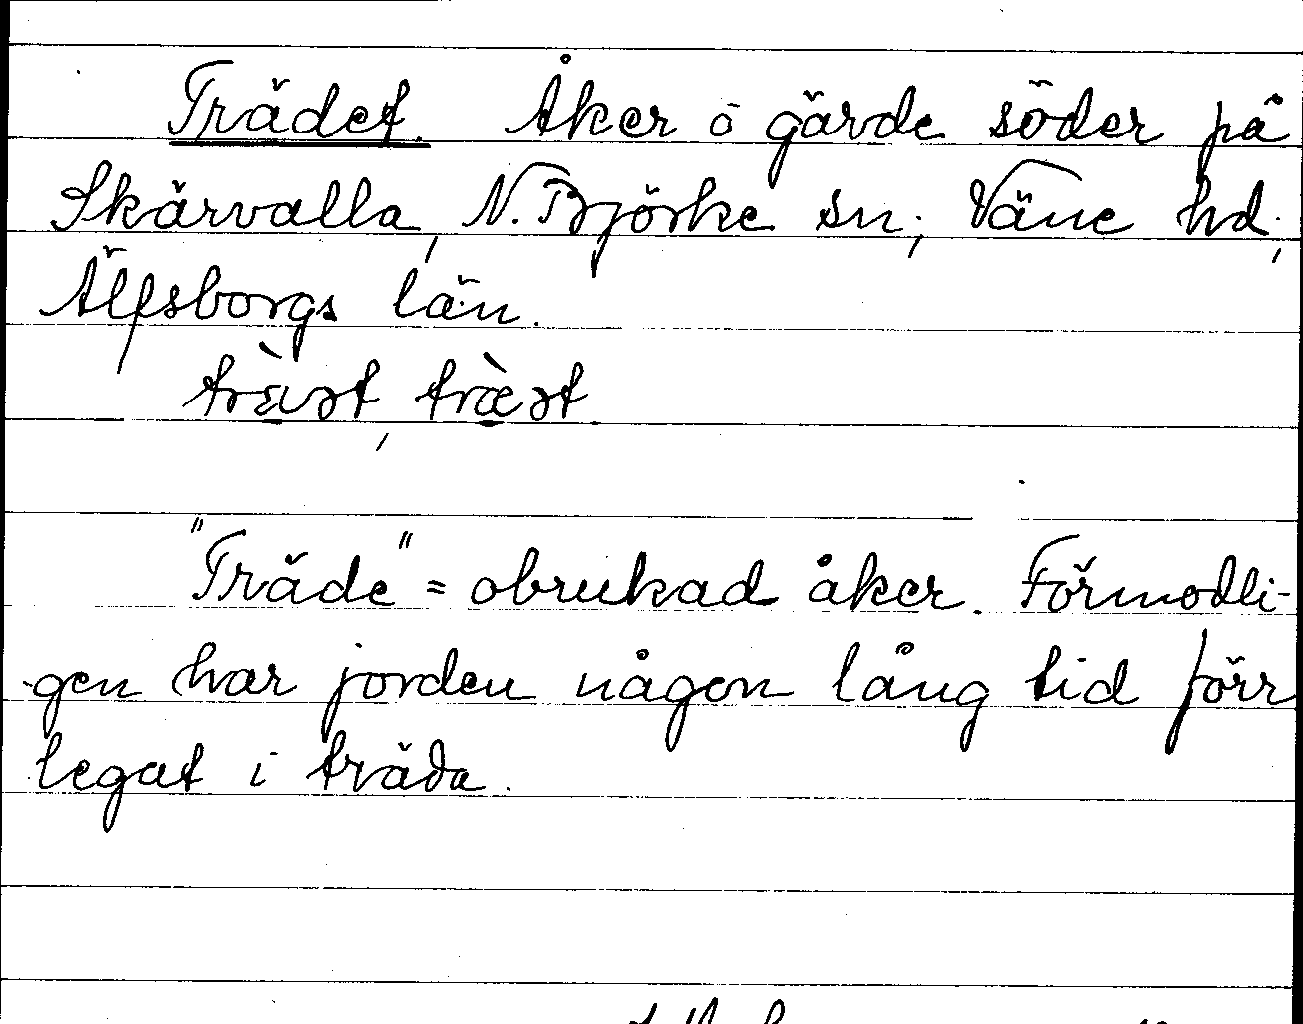 Trädet. Åker o gärde söder på
Skärvalla, N. Björke sn; Väne hd;
Älfsborgs län.
"Träde" = obrukad åker. Förmodli-
gen har jorden någon lång tid förr
legat i träda.